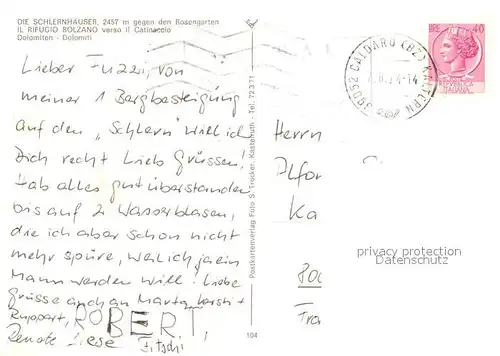 DIE SCHLERNHÄUSER, 2457 m gegen den Rosengarten
IL RIFUGIO BOLZANO verso il Catinaccio
Dolomiten - Dolomiti
Lieber Fuzzi, von
meiner 1 Bergbesteigung
auf den "Schlern" will ich
Dich recht lieb grüssen!
Hab alles gut überstanden
bis auf 2 Wasserblasen,
die ich aber schon nicht
mehr spüre, weil ich ja ein
Mann werden will! Liebe
Grüsse auch an Marta,
Ruppart, ROBERT,
Renate Liese
Postkartenverlag Foto S. Trocker, Kastelruth - Tel. 72371
104
39052 CALDARO (BZ) KALTERN
40
REPUBBLICA
ITALIANA
Herrn
Ka
privacy protection
Datenschutz